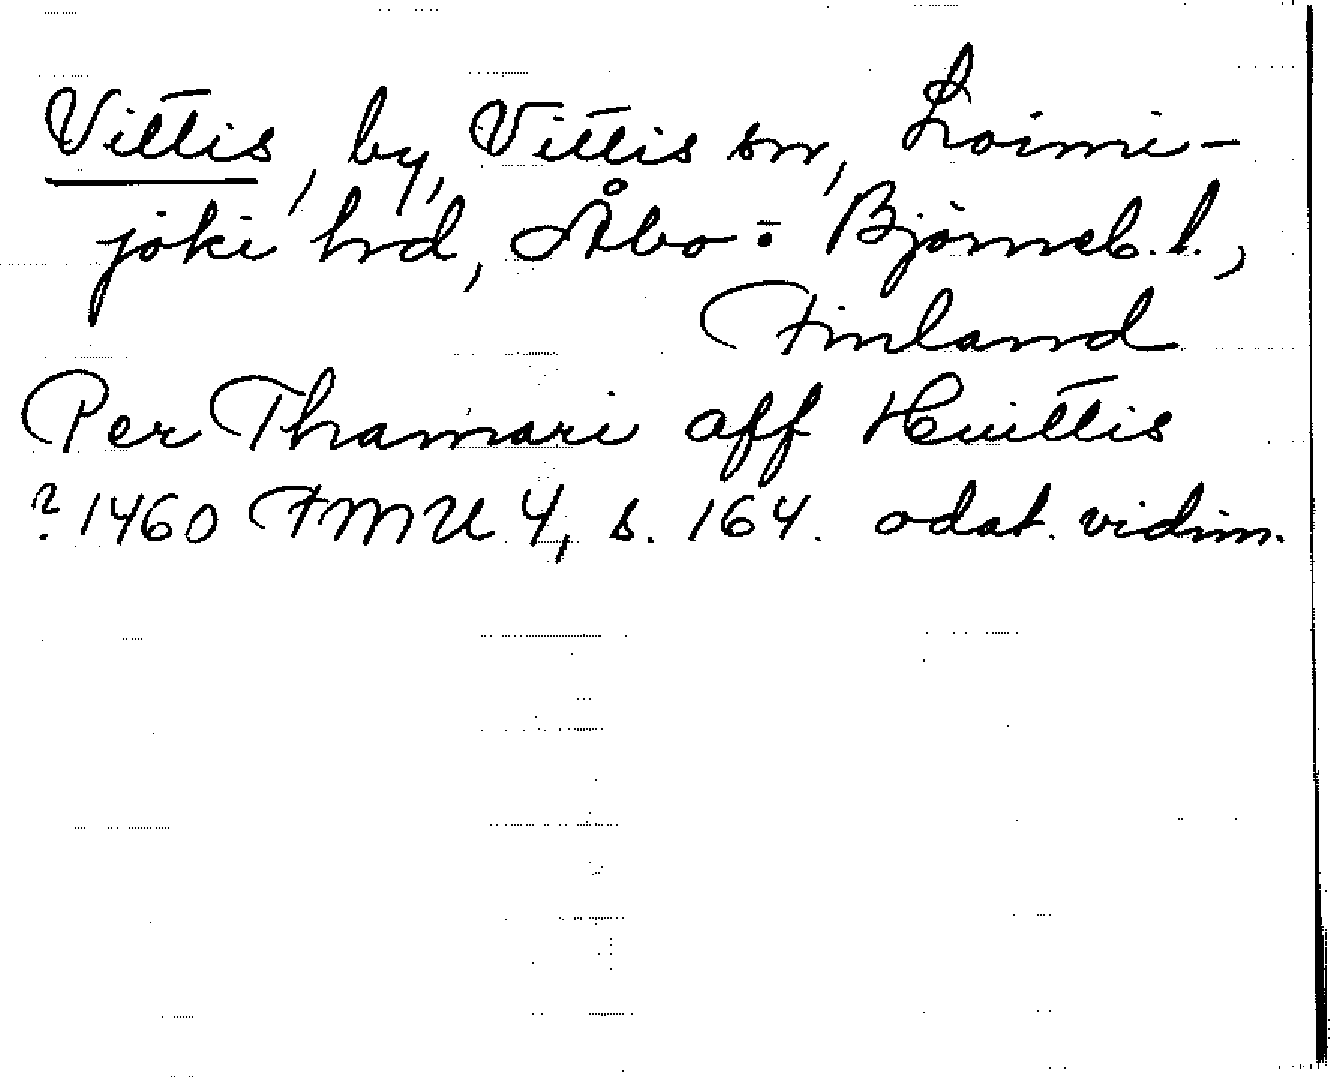 Vittis, by, Vittis sn, Loimi-
joki hrd, Åbo- Björneb. l.,
Finland
Per Thamari aff Huittis
? 1460 FMU 4, s. 164. odat. vidim.